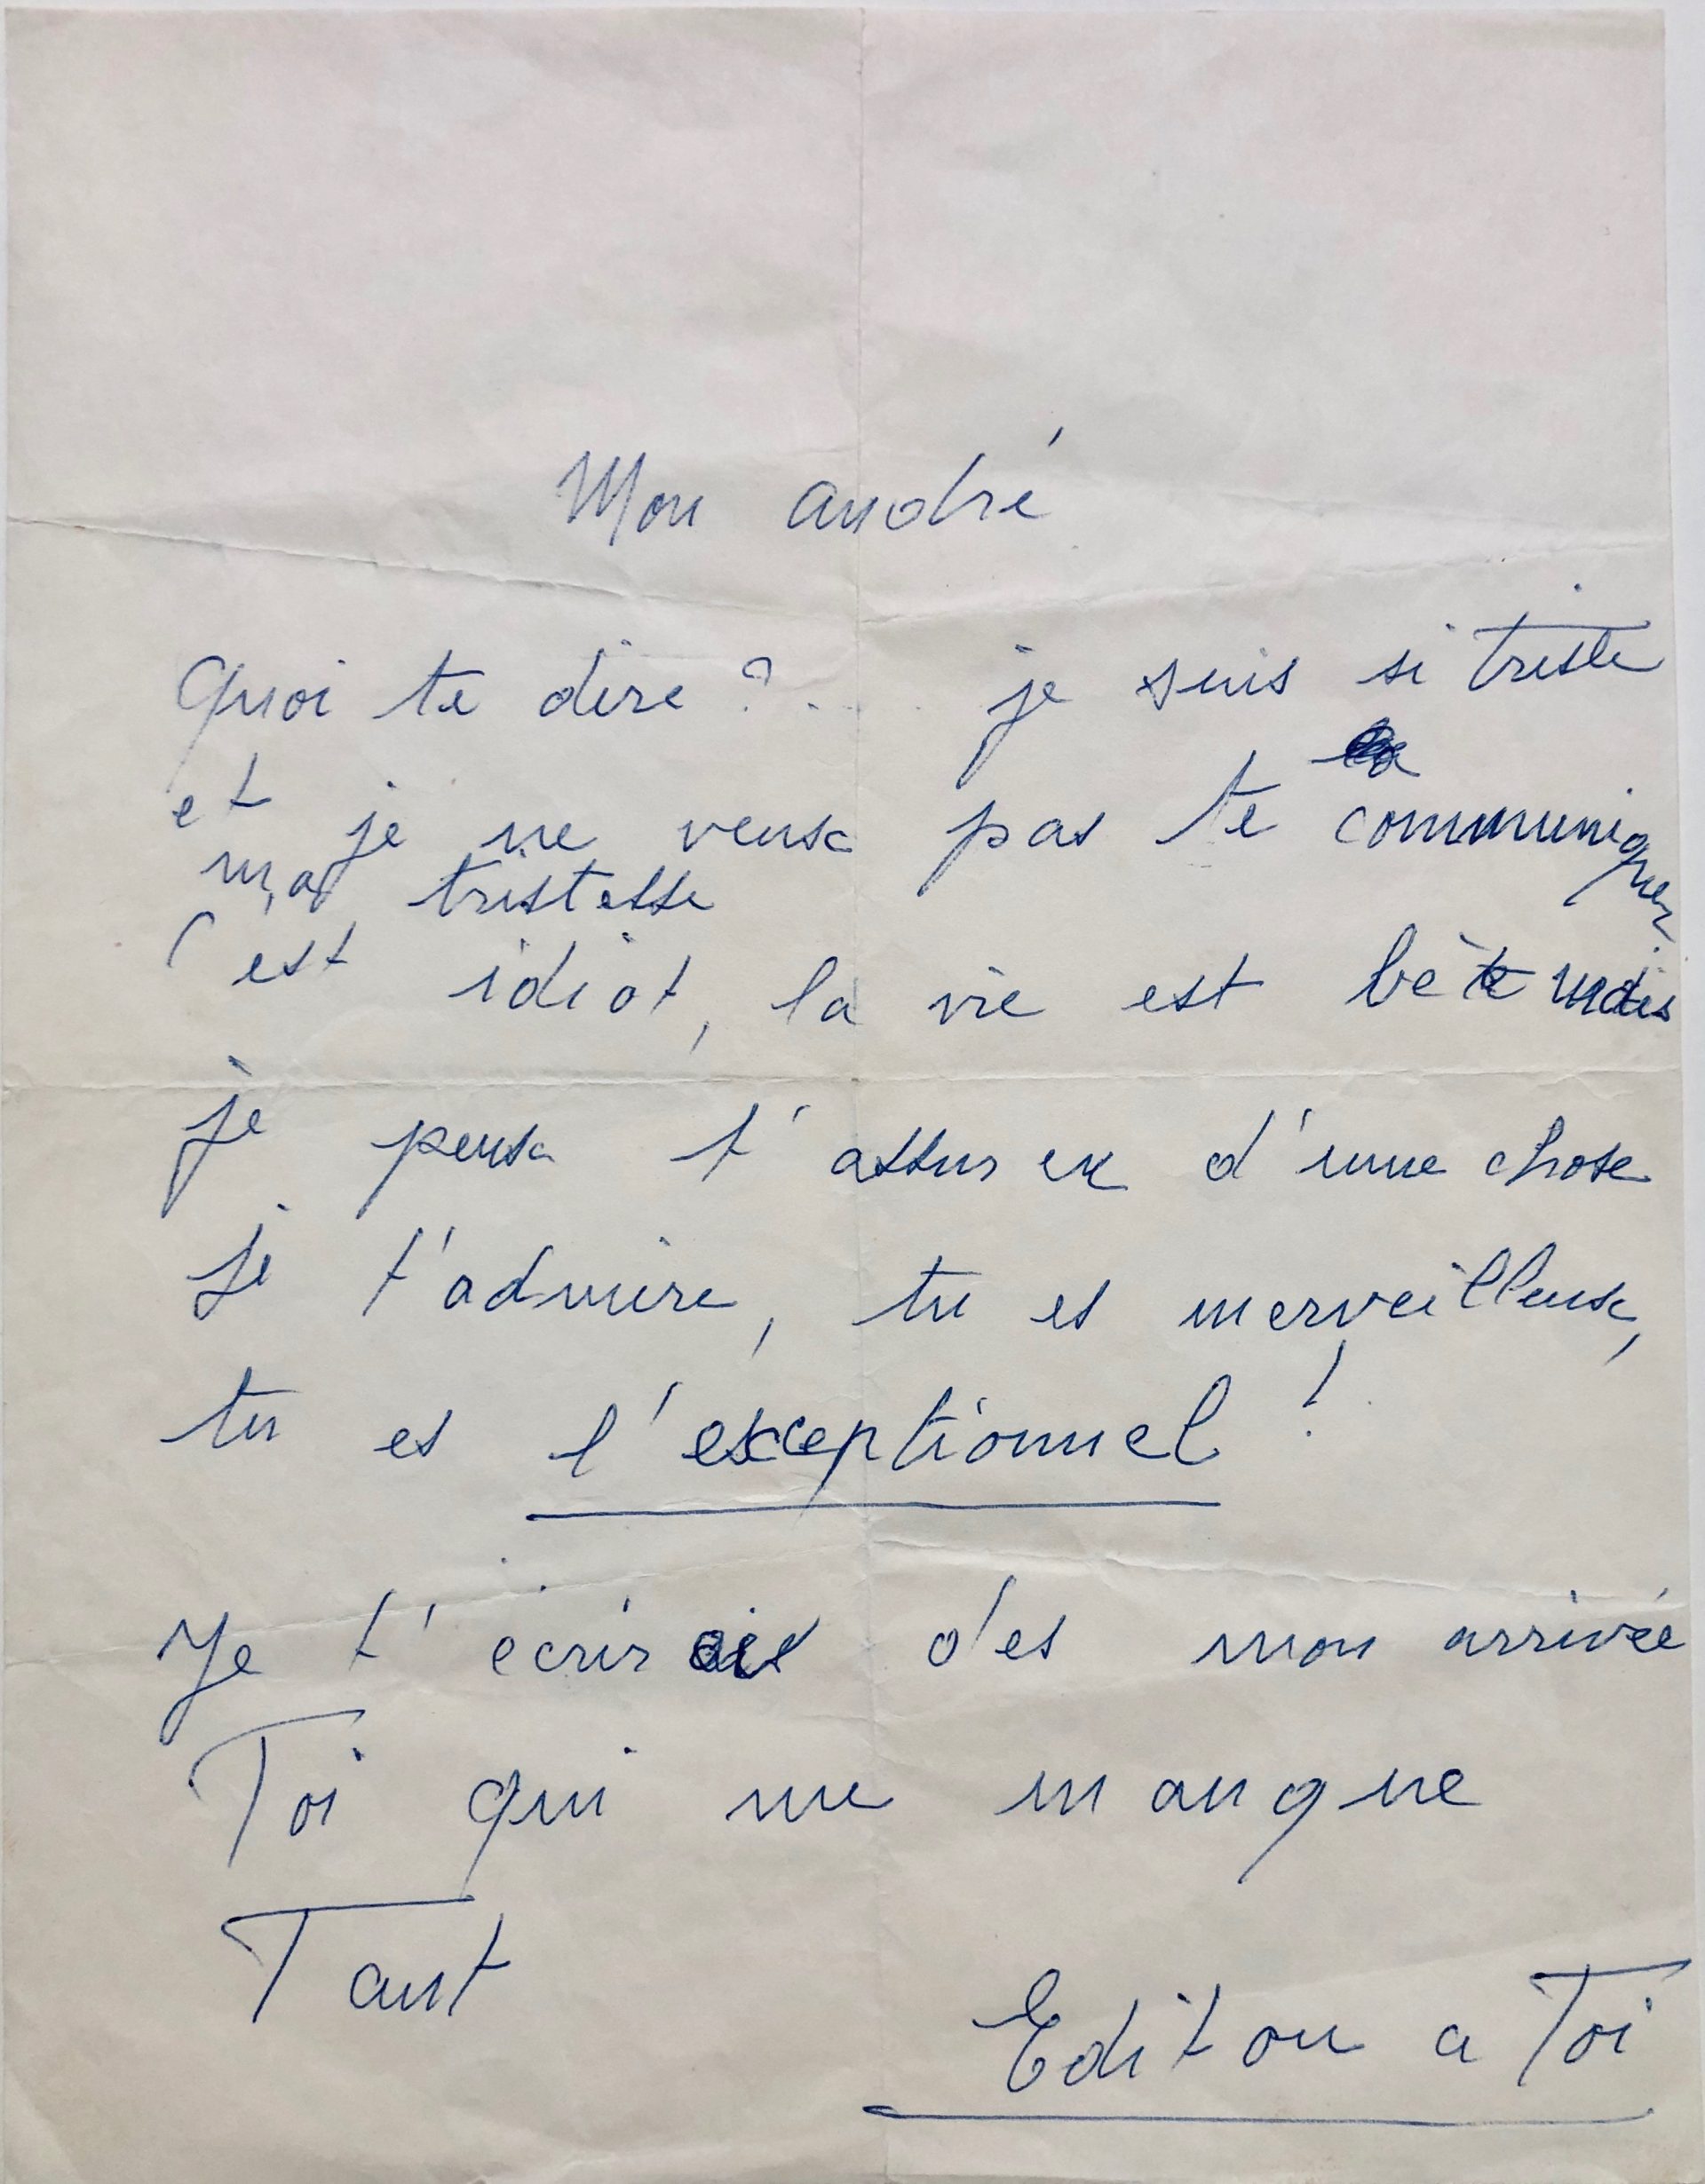 Mon andré
Quoi te dire ?... je suis si triste
et je ne veux pas te communiquer
ma tristesse
C'est idiot, la vie est bète mais
je peux t'assurer d'une chose
je t'admire, tu es merveilleux,
tu es l'exceptionnel !
Je t'ecrirais des mon arrivée
Toi qui me manque
Tant
Editou a Toi